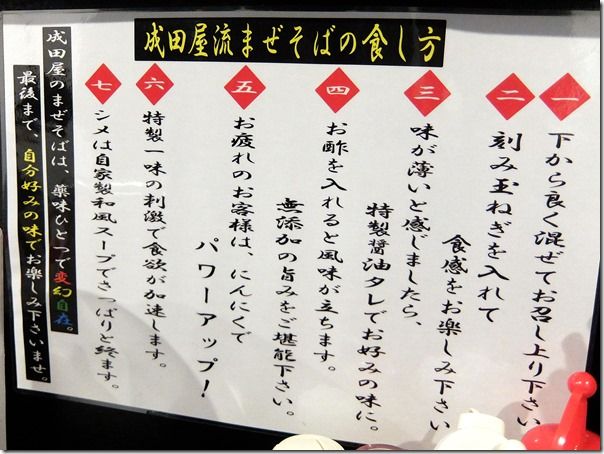 成田屋流まぜそばの食し方
一
下から良く混ぜてお召し上り下さい
二
刻み玉ねぎを入れて
食感をお楽しみ下さい
三
味が薄いと感じましたら、
特製醤油タレでお好みの味に。
四
お酢を入れると風味が立ちます。
無添加の旨みをご堪能下さい。
五
お疲れのお客様は、にんにくで
パワーアップ！
六
特製一味の刺激で食欲が加速します。
七
シメは自家製和風スープでさっぱりと終ます。
成田屋のまぜそばは、薬味ひとつで変幻自在。
最後まで、自分好みの味でお楽しみ下さいませ。